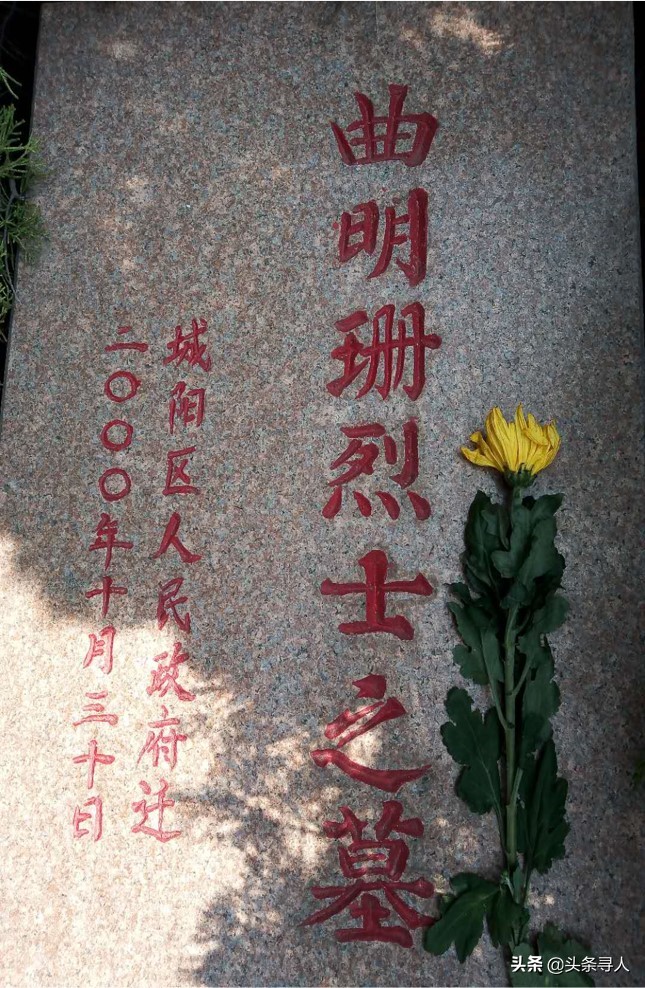 曲明珊烈士之墓
城阳区人民政府迁
二〇〇〇年十月三十日
头条 @头条寻人